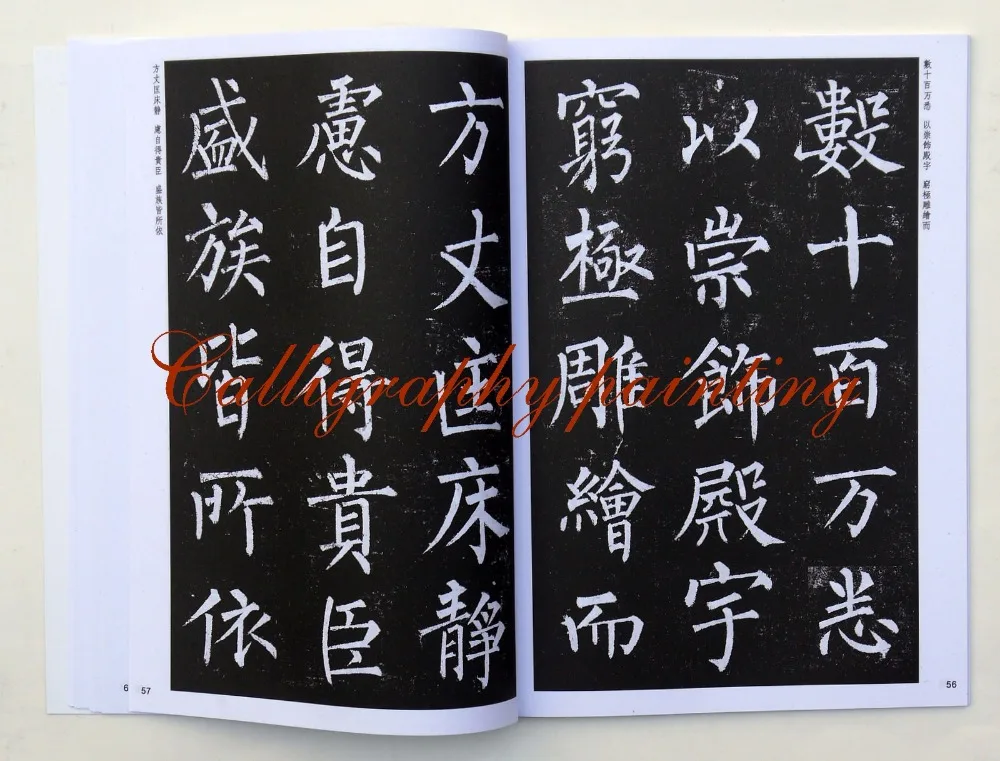 數十百万悉　以崇飾殿宇　窮極雕繪而
數十百万悉
以崇飾殿宇
窮極雕繪而
56
方丈匡床靜
慮自得貴臣
盛族皆所依
方丈匡床靜　慮自得貴臣　盛族皆所依
57
6
Calligraphy painting